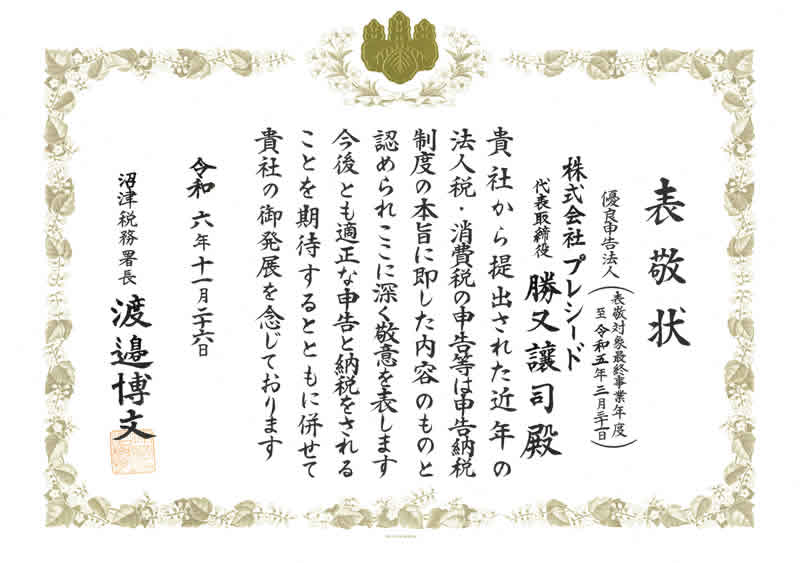 表敬状
優良申告法人(表敬対象最終事業年度 至令和五年三月三十一日)
株式会社プレシード
代表取締役 勝又譲司殿
貴社から提出された近年の
法人税・消費税の申告等は申告納税
制度の本旨に即した内容のものと
認められここに深く敬意を表します
今後とも適正な申告と納税をされる
ことを期待するとともに併せて
貴社の御発展を念じております
令和六年十一月二十六日
沼津税務署長 渡邉博文